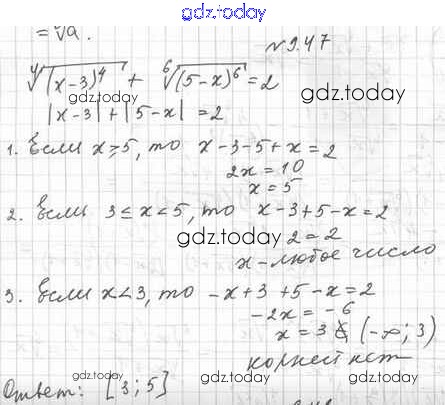 gdz.today
= ⁿ√a.
№ 9.47
⁴√(x-3)⁴ + ⁶√(5-x)⁶ = 2
gdz.today
gdz.today
|x-3| + |5-x| = 2
1. Если x ≥ 5, то x-3-5+x=2
2x = 10
x = 5
2. Если 3 ≤ x < 5, то x-3+5-x=2
gdz.today
2 = 2
x - любое число
3. Если x < 3, то -x+3+5-x=2
-2x = -6
x = 3 ∉ (-∞; 3)
корней нет
Ответ: [3; 5]
gdz.today
gdz.today
gdz.today